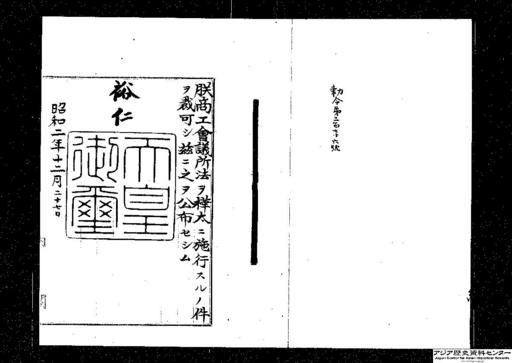 勅令第三百七十六號
朕商工會議所法ヲ樺太ニ施行スルノ件
ヲ裁可シ茲ニ之ヲ公布セシム
裕仁
天皇
御璽
昭和二年十二月二十七日
アジア歴史資料センター
Japan Center for Asian Historical Records